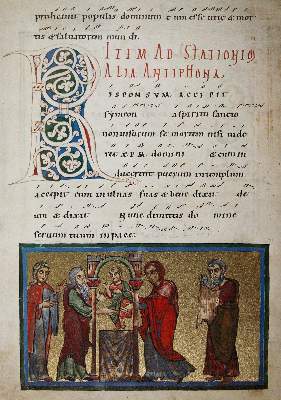 prophetauit populus dominum cum esse uere & mor
tis & saluatorem mundi.
ITEM AD STATIONEM
ALIA ANTIPHONA.
RESPONSUM ACCEPIT
symeon a spiritu sancto
non uisurum se mortem nisi uide
ret XPM domini & cum in
ducerent puerum in templum
accepit eum in ulnas suas & bene dixit de
um & dixit Nunc dimittis do mine
seruum tuum in pace.